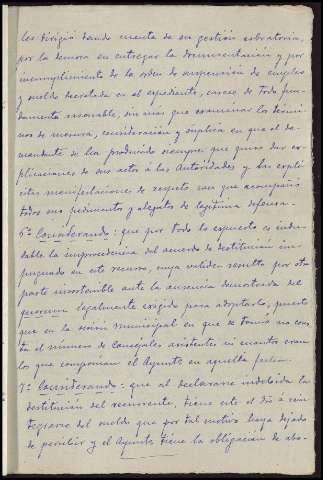 les dirigió dando cuenta de su gestión exhortatoria,
por la demora en entregar la documentación y por
incumplimiento de la orden de suspensión de empleo
y sueldo decretada en el expediente, carece de todo fun-
damento razonable, sin más que examinar los térmi-
nos de mesura, consideración y súplica en que el de-
mandante se ha producido siempre que quiso dar ex-
plicaciones de sus actos á las Autoridades y las explí-
citas manifestaciones de respeto con que acompañó
todos sus pedimentos y alegatos de legítima defensa.
6º Considerando: que por todo lo expuesto es indu-
dable la improcedencia del acuerdo de destitución im-
pugnado en este recurso, cuya validez resulta por otra
parte insostenible ante la ausencia demostrada del
quorum legalmente exigido para adoptarlo, puesto
que en la sesión municipal en que se tomó no cons-
ta el número de Concejales asistentes ni cuantos eran
los que componían el Ayunto en aquella fecha.
7º Considerando: que al declararse indebida la
destitución del recurrente, tiene este el dro á rein-
tegrarse del sueldo que por tal motivo haya dejado
de percibir y el Ayunto tiene la obligación de abo-